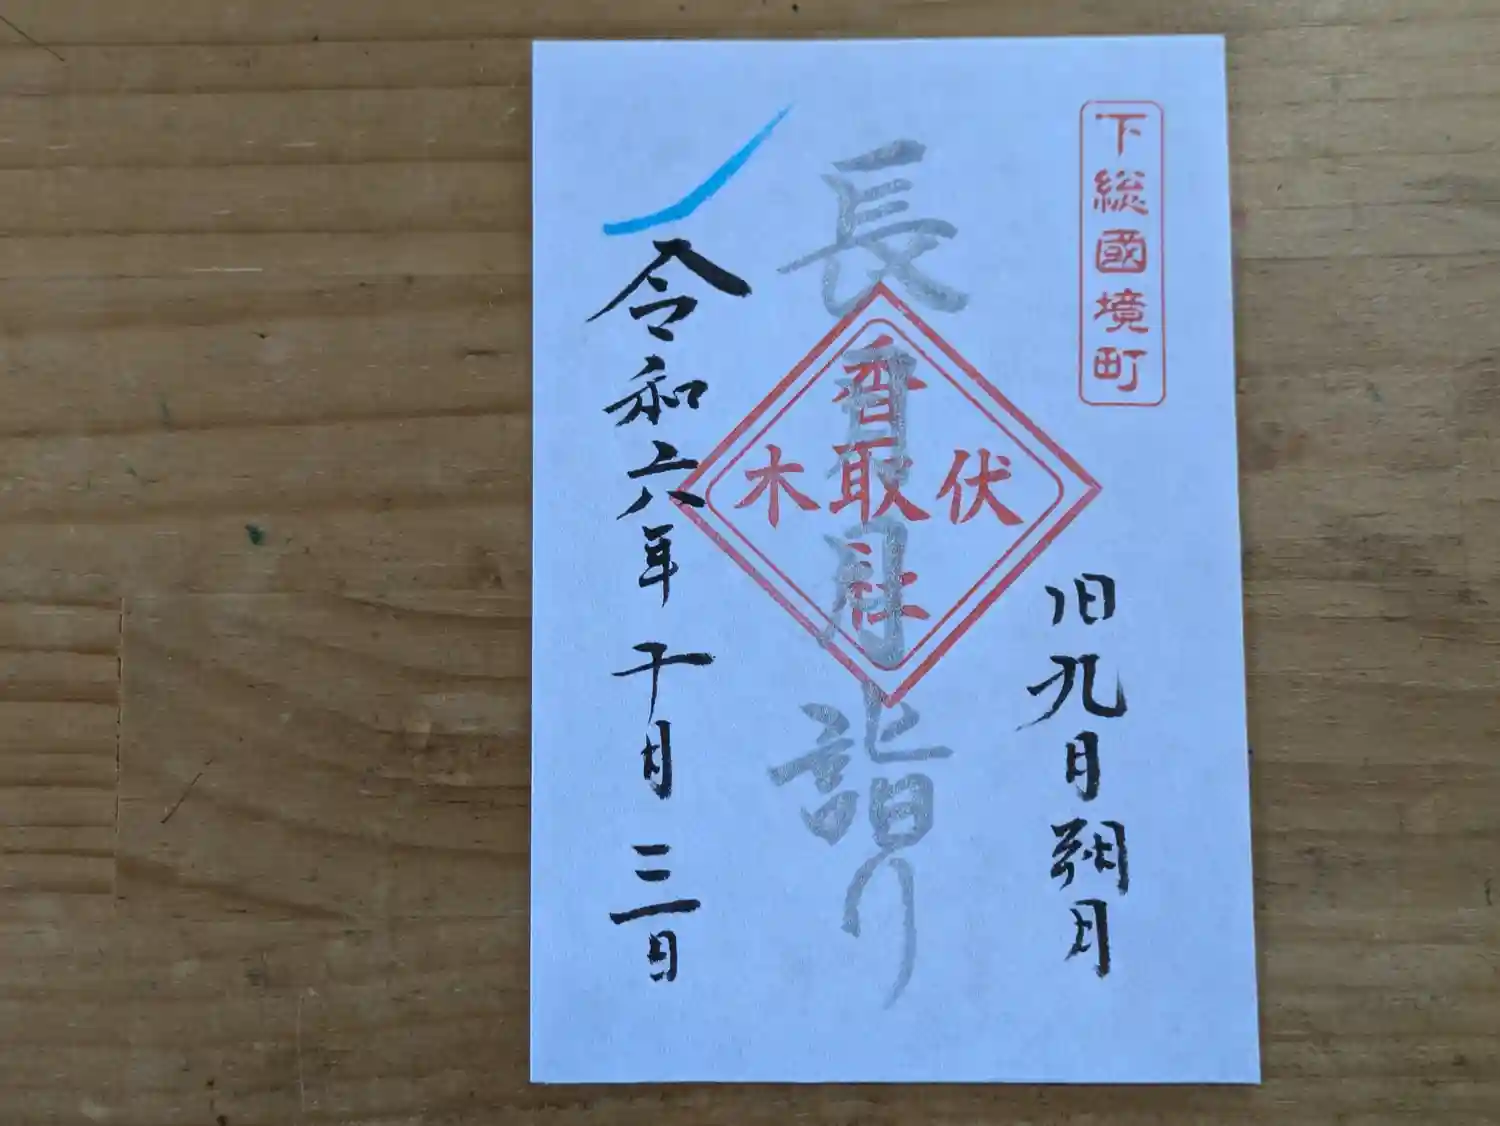 下総國境町
旧九月朔日
長月月詣り
伏木
香取社
令和六年十月三日